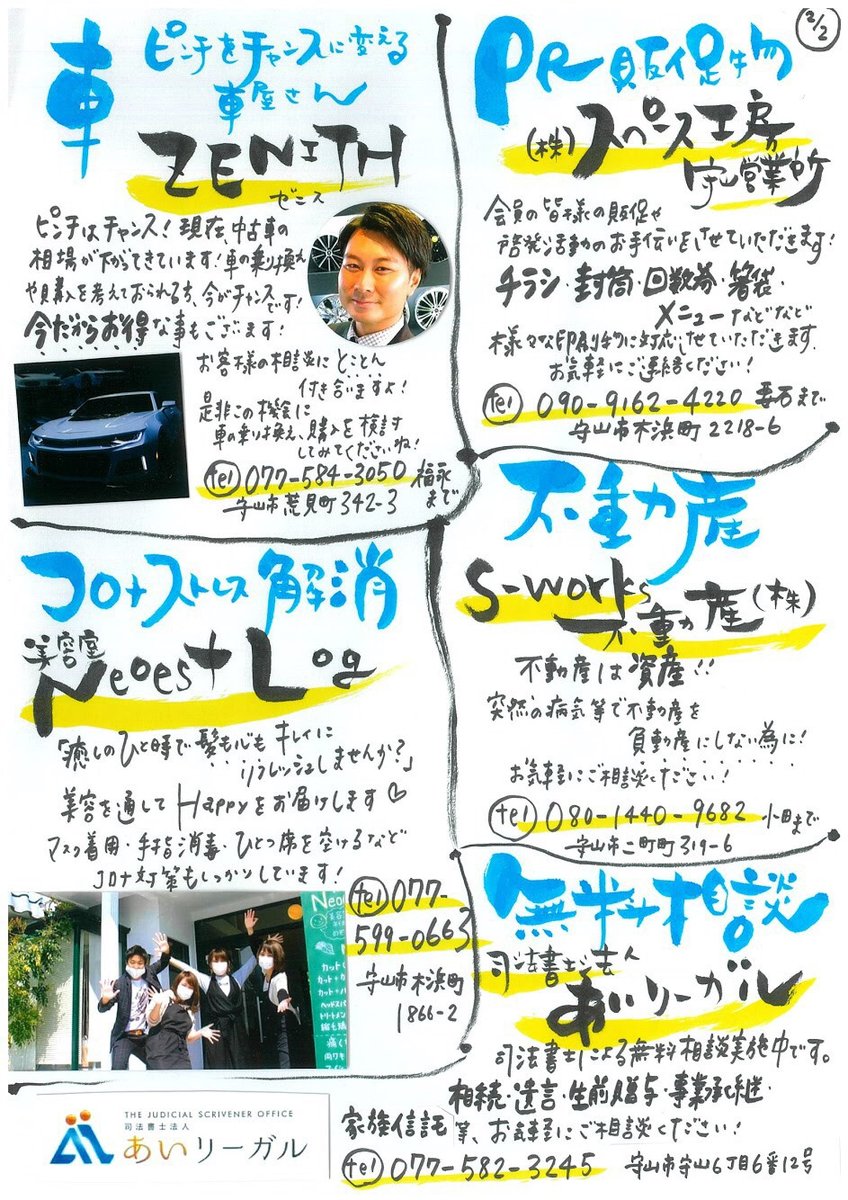 2/2
車
ピンチをチャンスに変える
車屋さん
ZENITH
ゼニス
ピンチはチャンス!現在、中古車の
相場が下がってきています!車の乗り換え
や購入を考えておられる方、今がチャンスです!
今だからお得な事もございます!
お客様の相談にとことん
付き合いますよ!
是非この機会に
車の乗り換え、購入を検討
してみてくださいね!
tel 077-584-3050 福永
まで
守山市荒見町342-3
PR販促物
(株)スペース工房
守山営業所
会員の皆様の販促や
啓発活動のお手伝いをさせていただきます!
チラシ・封筒・回数券・箸袋・
メニューなどなど
様々な印刷物に対応させていただきます。
お気軽にご連絡ください!
tel 090-9162-4220 まで
守山市木浜町2218-6
コロナストレス解消
美容室
Neoest Log
「癒しのひと時で髪も心もキレイに
リフレッシュしませんか?」
美容を通してHappyをお届けします♡
マスク着用・手指消毒・ひとつ席を空けるなど
コロナ対策もしっかりしています!
tel 077-
599-0663
守山市木浜町
1866-2
不動産
S-works
不動産(株)
不動産は資産!!
突然の病気等で不動産を
負動産にしない為に!
お気軽にご相談ください!
tel 080-1440-9682 小田まで
守山市二町町319-6
無料相談
司法書士法人
あいリーガル
司法書士による無料相談実施中です。
相続・遺言・生前贈与・事業承継・
家族信託等、お気軽にご相談ください!
tel 077-582-3245 守山市守山6丁目6番12号
THE JUDICIAL SCRIVENER OFFICE
司法書士法人
あいリーガル